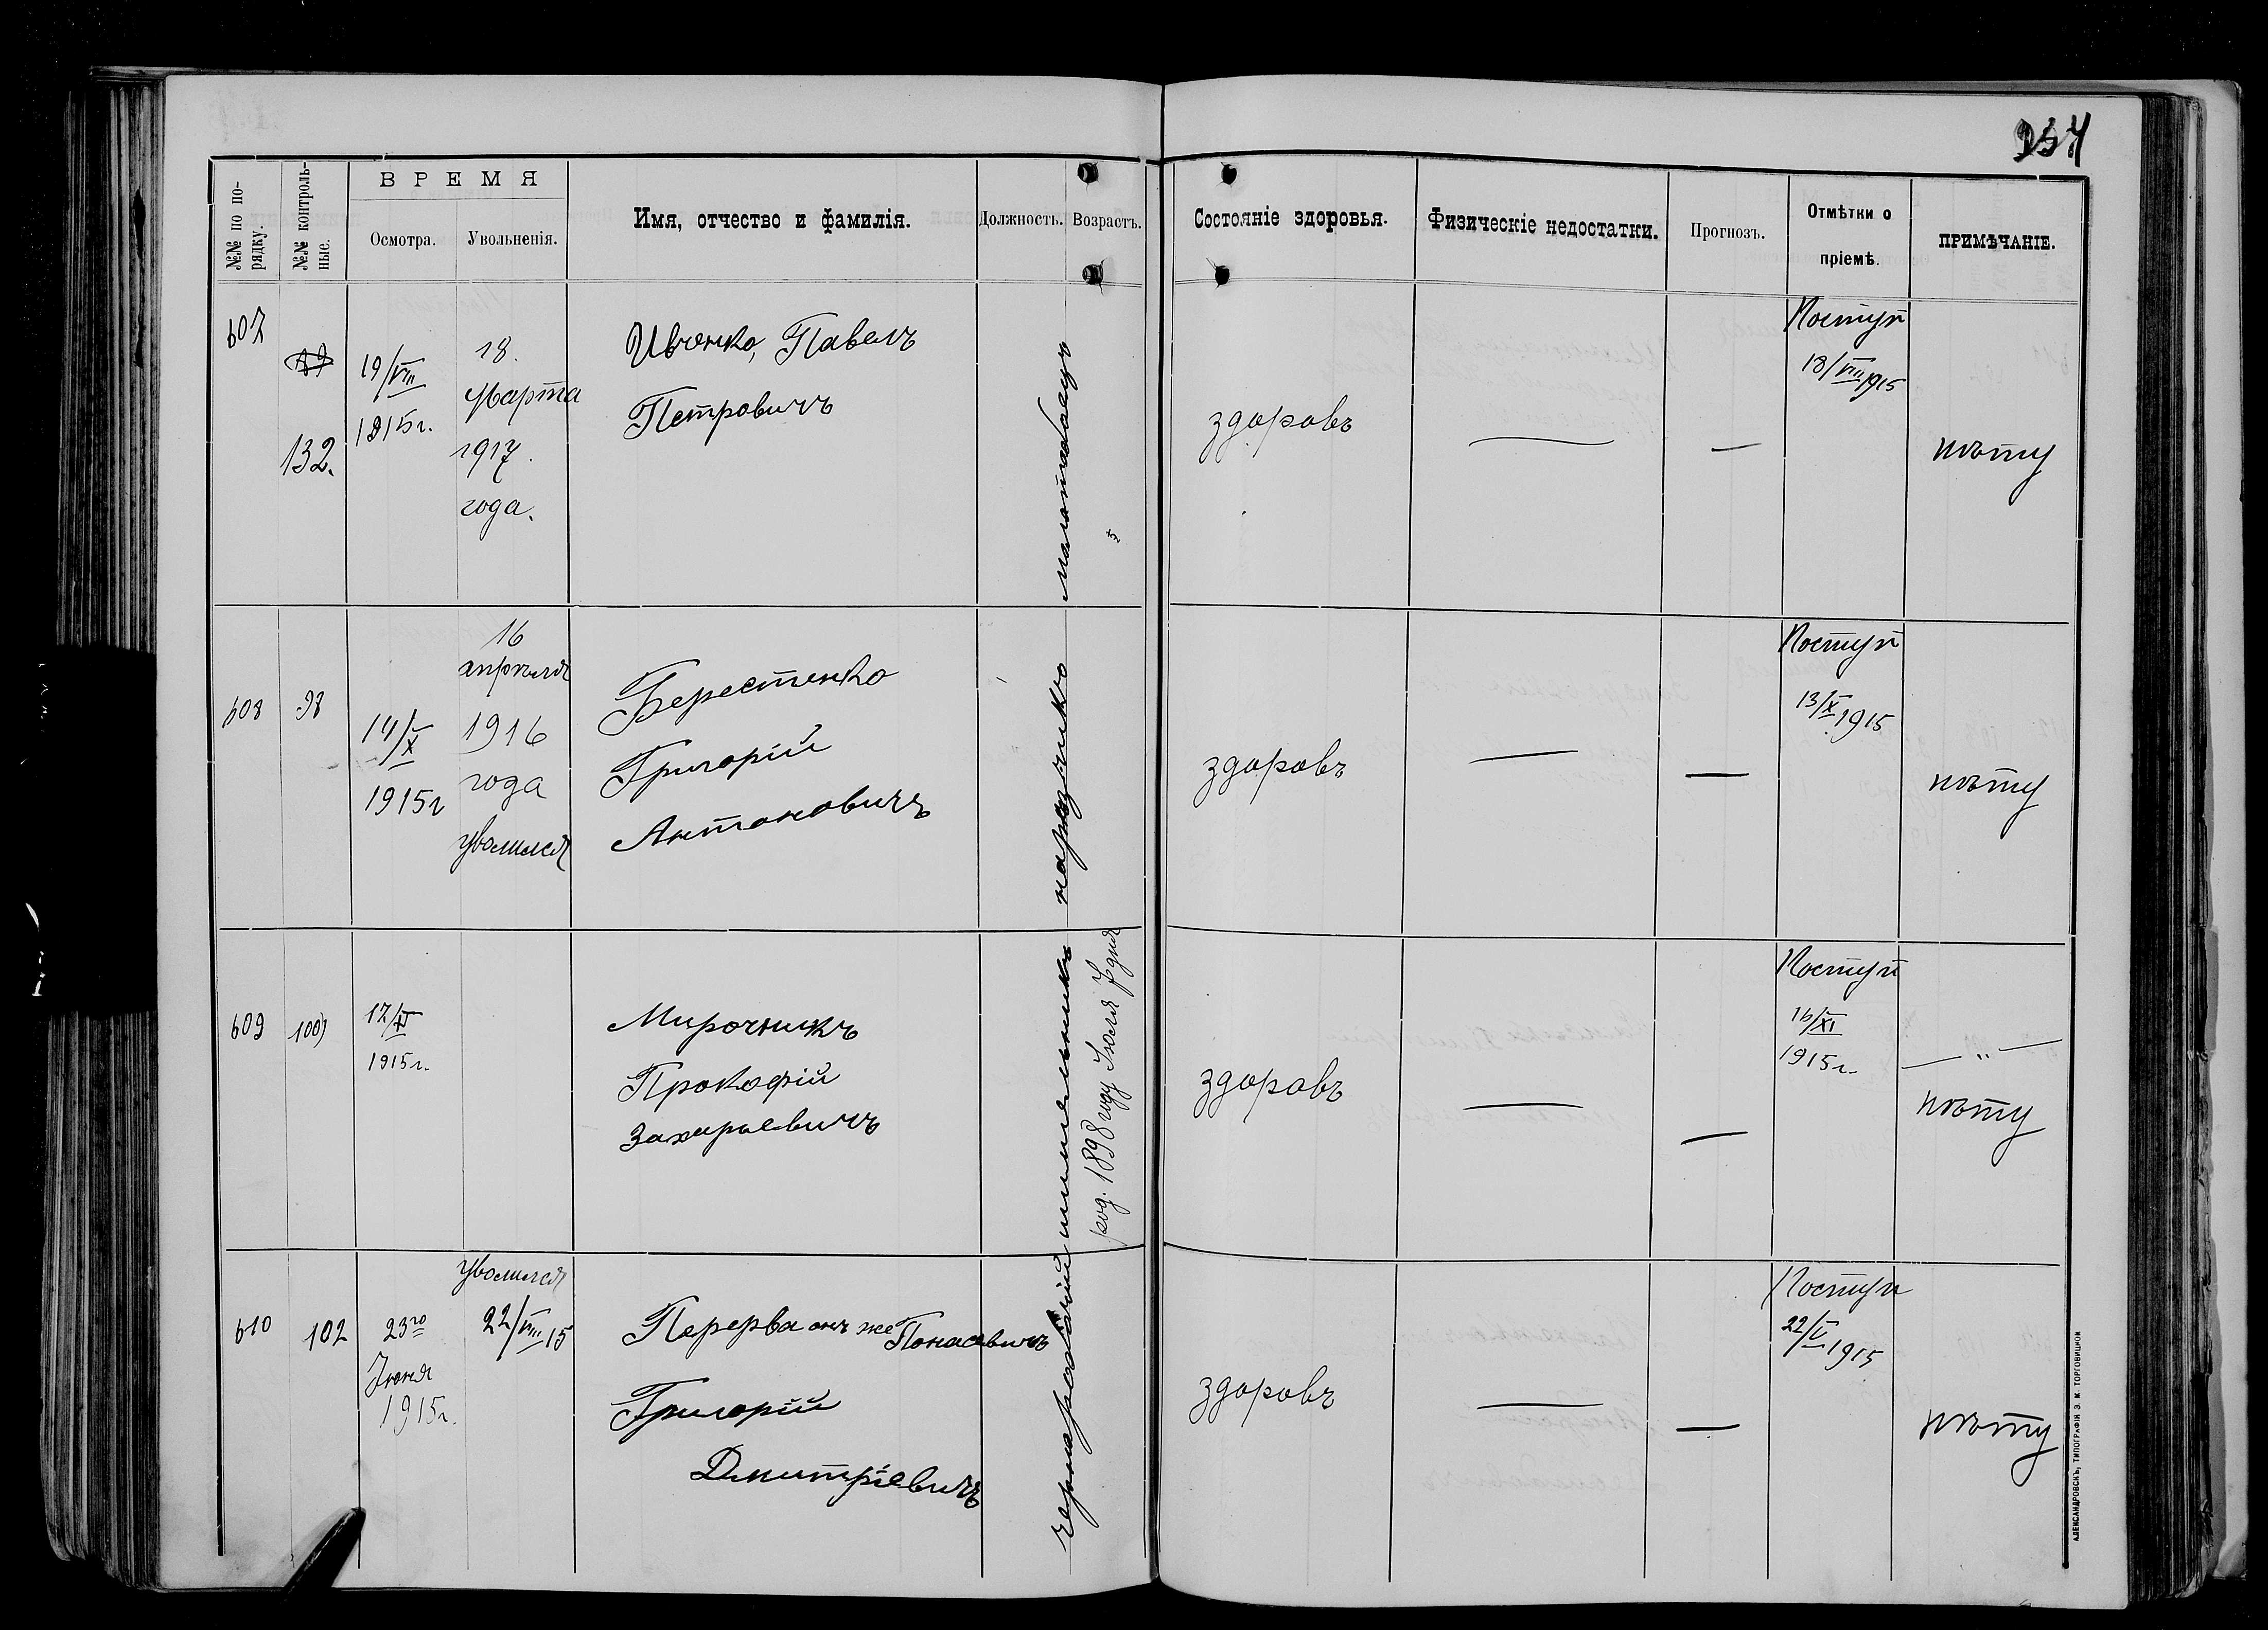 №№ по по-
рядку.
№№ контроль-
ные.
ВРЕМЯ
Осмотра.
Увольненія.
Имя, отчество и фамилія.
Должность.
Возрастъ.
Состояніе здоровья.
Физическіе недостатки.
Прогнозъ.
Отмѣтки о
пріемѣ.
ПРИМѢЧАНІЕ.
607
132.
19/VIII
1915г.
18.
Марта
1917.
года.
Ивченко, Павелъ
Петровичъ
молотобоецъ
здоровъ
—
—
Поступ
18/VIII 1915
нѣту
608
98
14/X
1915г
16
апрѣля
1916
года
уволился
Берестенко
Григорій
Антоновичъ
здоровъ
—
—
Поступ
13/X 1915
нѣту
609
100
17/XI
1915г.
Мирочникъ
Прокофій
Захарьевичъ
шпилельникъ
род. 1898 году Іюля 7 дня
здоровъ
—
—
Поступ
16/XI
1915г.
— „ —
нѣту
610
102
23го
Іюня
1915г.
уволился
22/VIII 15
Перерва онъ же Понасевичъ
Григорій
Дмитріевичъ
чернорабочій
здоровъ
—
—
Поступ
22/V 1915
нѣту
АЛЕКСАНДРОВСКЪ, ТИПОГРАФІЯ Э. М. ТОРГОВИЦКОЙ